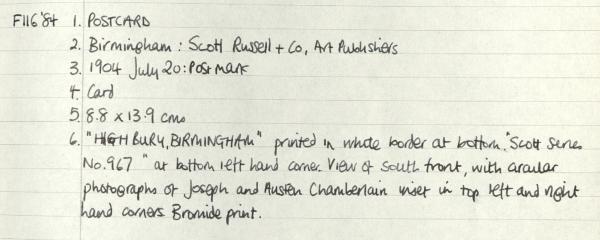 F116'84 1. POSTCARD
2. Birmingham : Scott Russell + Co, Art Publishers
3. 1904 July 20: Postmark
4. Card
5. 8.8 x 13.9 cms
6. "HIGHBURY, BIRMINGHAM" printed in white border at bottom. "Scott Series
No. 967" at bottom left hand corner. View of South front, with circular
photographs of Joseph and Austen Chamberlain inset in top left and right
hand corners. Bromide print.